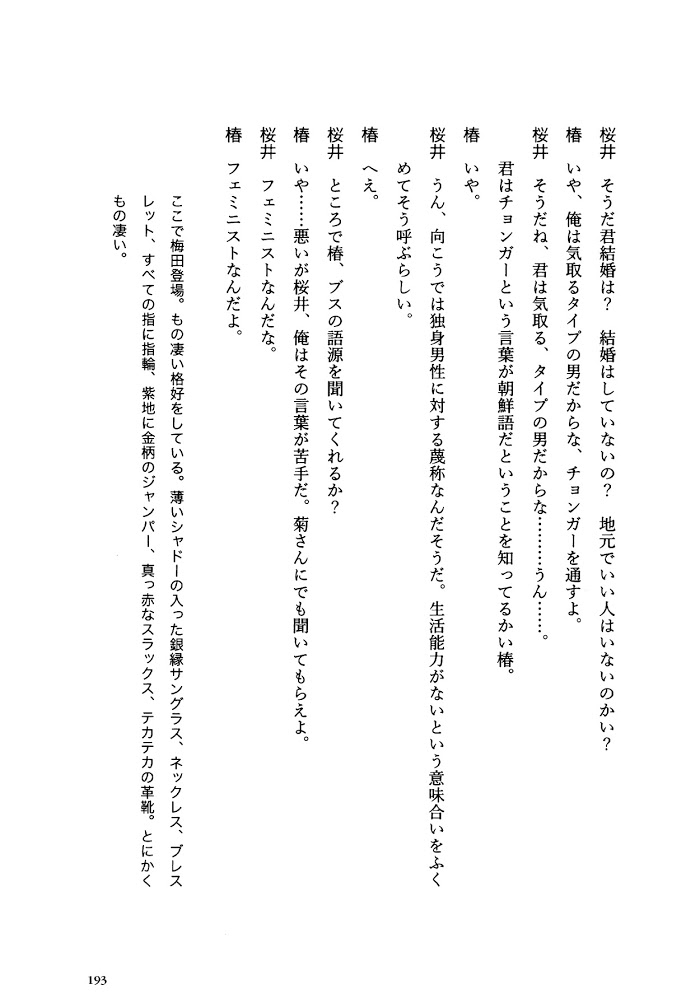 桜井　そうだ君結婚は？　結婚はしていないの？　地元でいい人はいないのかい？
椿　いや、俺は気取るタイプの男だからな、チョンガーを通すよ。
桜井　そうだね、君は気取る、タイプの男だからな…………うん……。
君はチョンガーという言葉が朝鮮語だということを知ってるかい椿。
椿　いや。
桜井　うん、向こうでは独身男性に対する蔑称なんだそうだ。生活能力がないという意味合いをふく
めてそう呼ぶらしい。
椿　へえ。
桜井　ところで椿、ブスの語源を聞いてくれるか？
椿　いや……悪いが桜井、俺はその言葉が苦手だ。菊さんにでも聞いてもらえよ。
桜井　フェミニストなんだな。
椿　フェミニストなんだよ。
ここで梅田登場。もの凄い格好をしている。薄いシャドーの入った銀縁サングラス、ネックレス、ブレス
レット、すべての指に指輪、紫地に金柄のジャンパー、真っ赤なスラックス、テカテカの革靴。とにかく
もの凄い。
193